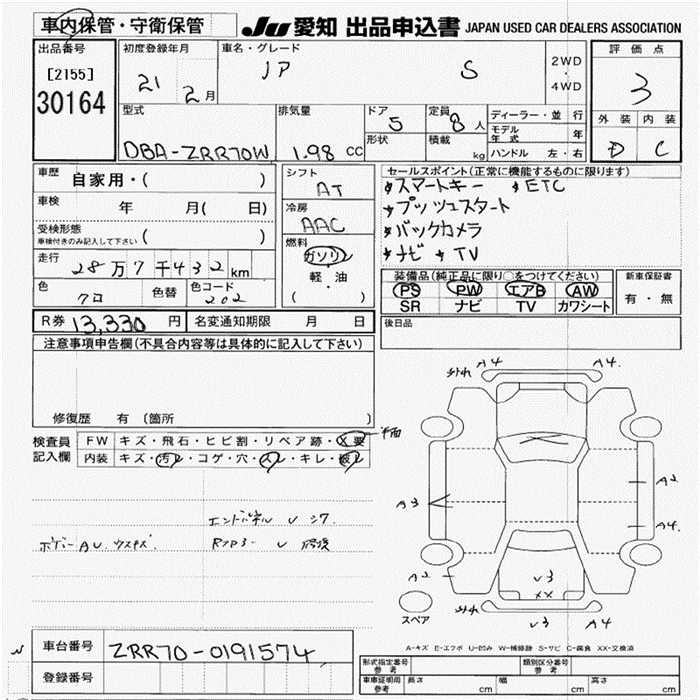 車内保管・守衛保管
JU 愛知 出品申込書 JAPAN USED CAR DEALERS ASSOCIATION
出品番号
[2155]
30164
初度登録年月
21 2月
車名・グレード
S
2WD
・
4WD
評価点
3
外装 内装
D C
型式
DBA-ZRR70W
排気量
1.98 CC
ドア
5
形状
定員
8人
積載
kg
ディーラー・並行
モデル年式 年
ハンドル 左・右
車歴
自家用・( )
車検
年 月( 日)
受検形態
車検付きのみ記入して下さい ( )
走行
28万7千432km
色
クロ
色替
色コード
202
シフト
AT
冷房
AAC
燃料
ガソリン
軽・油
( )
セールスポイント(正常に機能するものに限ります)
スマートキー ETC
プッシュスタート
バックカメラ
ナビ TV
装備品(純正品に限り○をつけてください)
PS PW エアB AW
SR ナビ TV カワシート
新車保証書
有・無
R券 13,330円
名変通知期限 月 日
後日品
注意事項申告欄(不具合内容等は具体的に記入して下さい)
修復歴 有 (箇所 )
検査員
記入欄
FW キズ・飛石・ヒビ割・リペア跡・X要
内装 キズ・汚レ・コゲ・穴・スレ・キレ・破レ
エンドパネル U シワ.
ボデーAU ウスキズ.
A4 A4.
A3
A2
A4.
A2
V3
XX
V3 A4
スペア
A-キズ E-エクボ U-凹み W-補修跡 S-サビ C-腐食 XX-交換済
車台番号 ZRR70-0191574
登録番号
形式指定番号 参考
類別区分番号 参考
車車証明用 参考
長さ cm 幅 cm 高さ cm